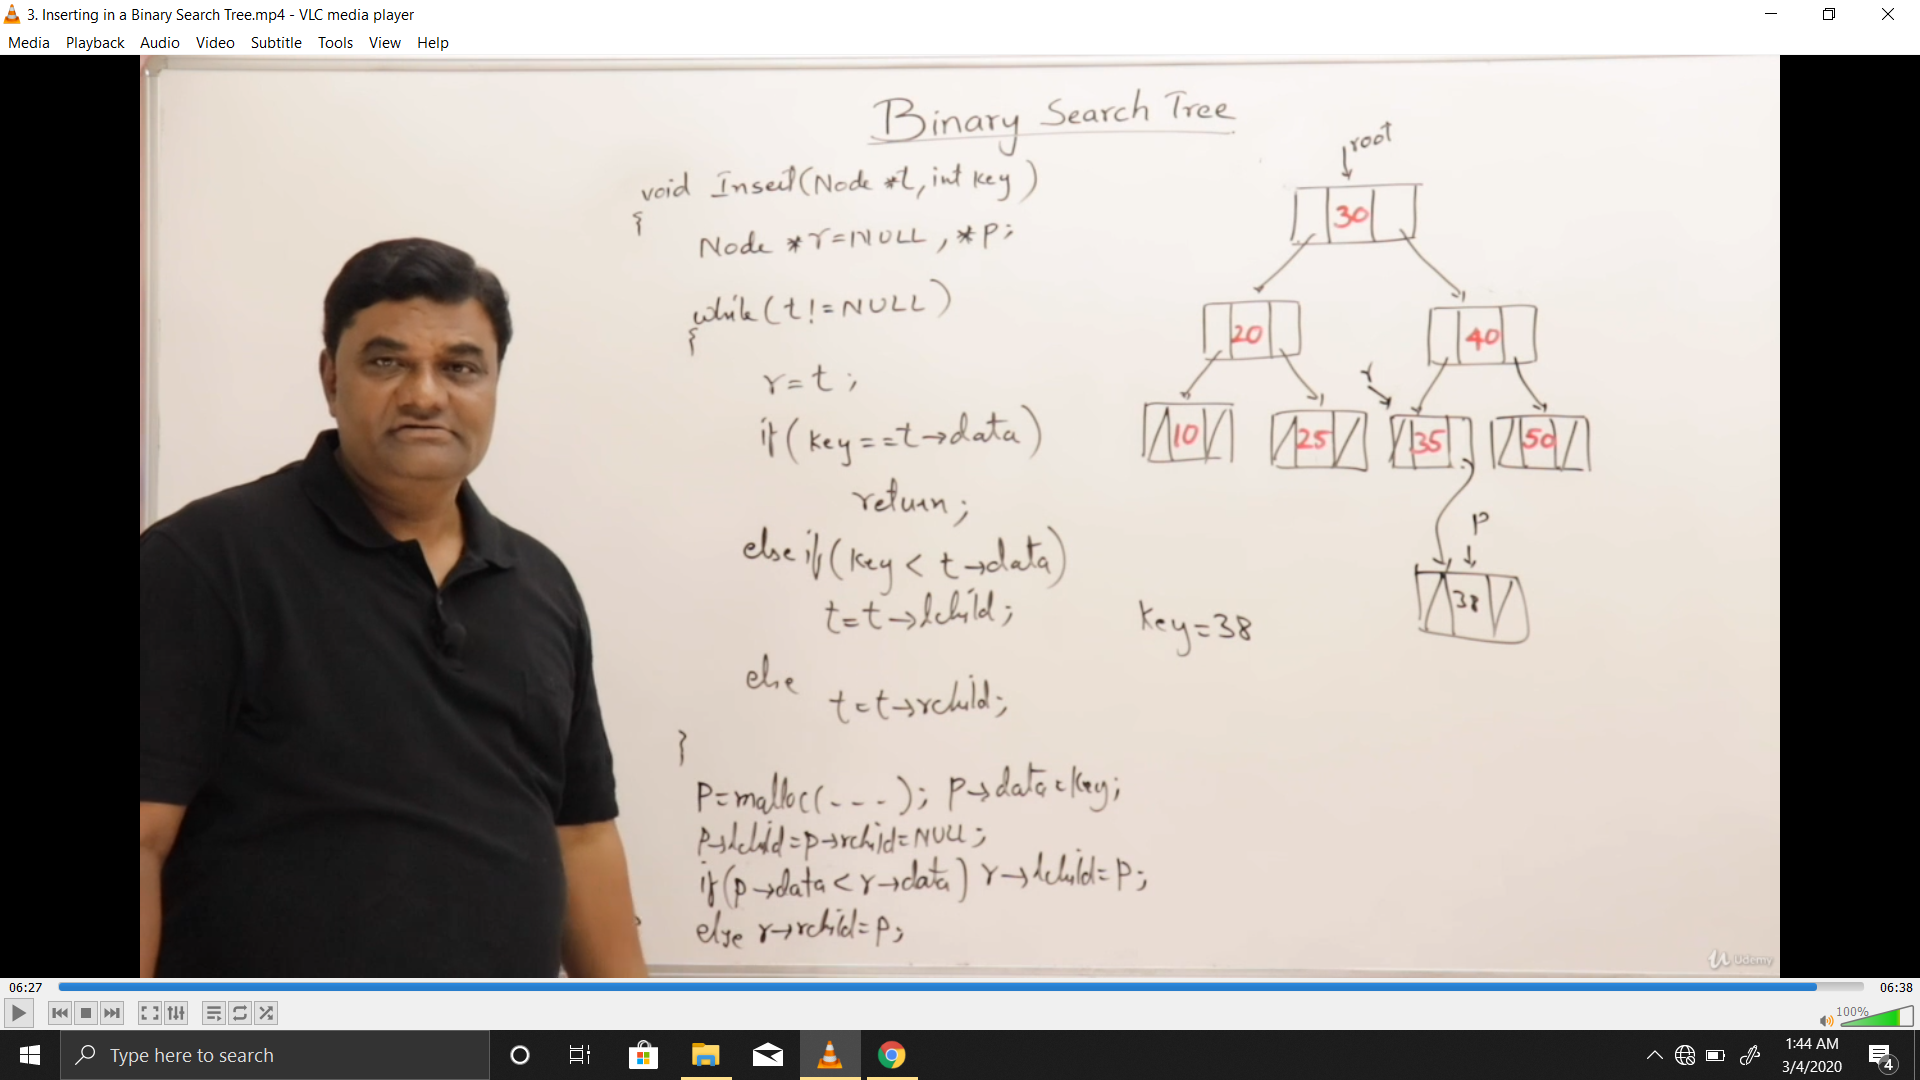 3. Inserting in a Binary Search Tree.mp4 - VLC media player
Media Playback Audio Video Subtitle Tools View Help
Binary Search Tree
void Insert(Node *t, int key)
{
Node *r=NULL, *p;
while(t!=NULL)
{
r=t;
if(key==t→data)
return;
else if(key < t→data)
t=t→lchild;
else
t=t→rchild;
}
P=malloc(---); p→data=key;
p→lchild=p→rchild=NULL;
if(p→data<r→data) r→lchild=p;
else r→rchild=p;
root
30
20
40
r
10
25
35
50
p
38
Key=38
Udemy
06:27
06:38
100%
Type here to search
1:44 AM
3/4/2020
4